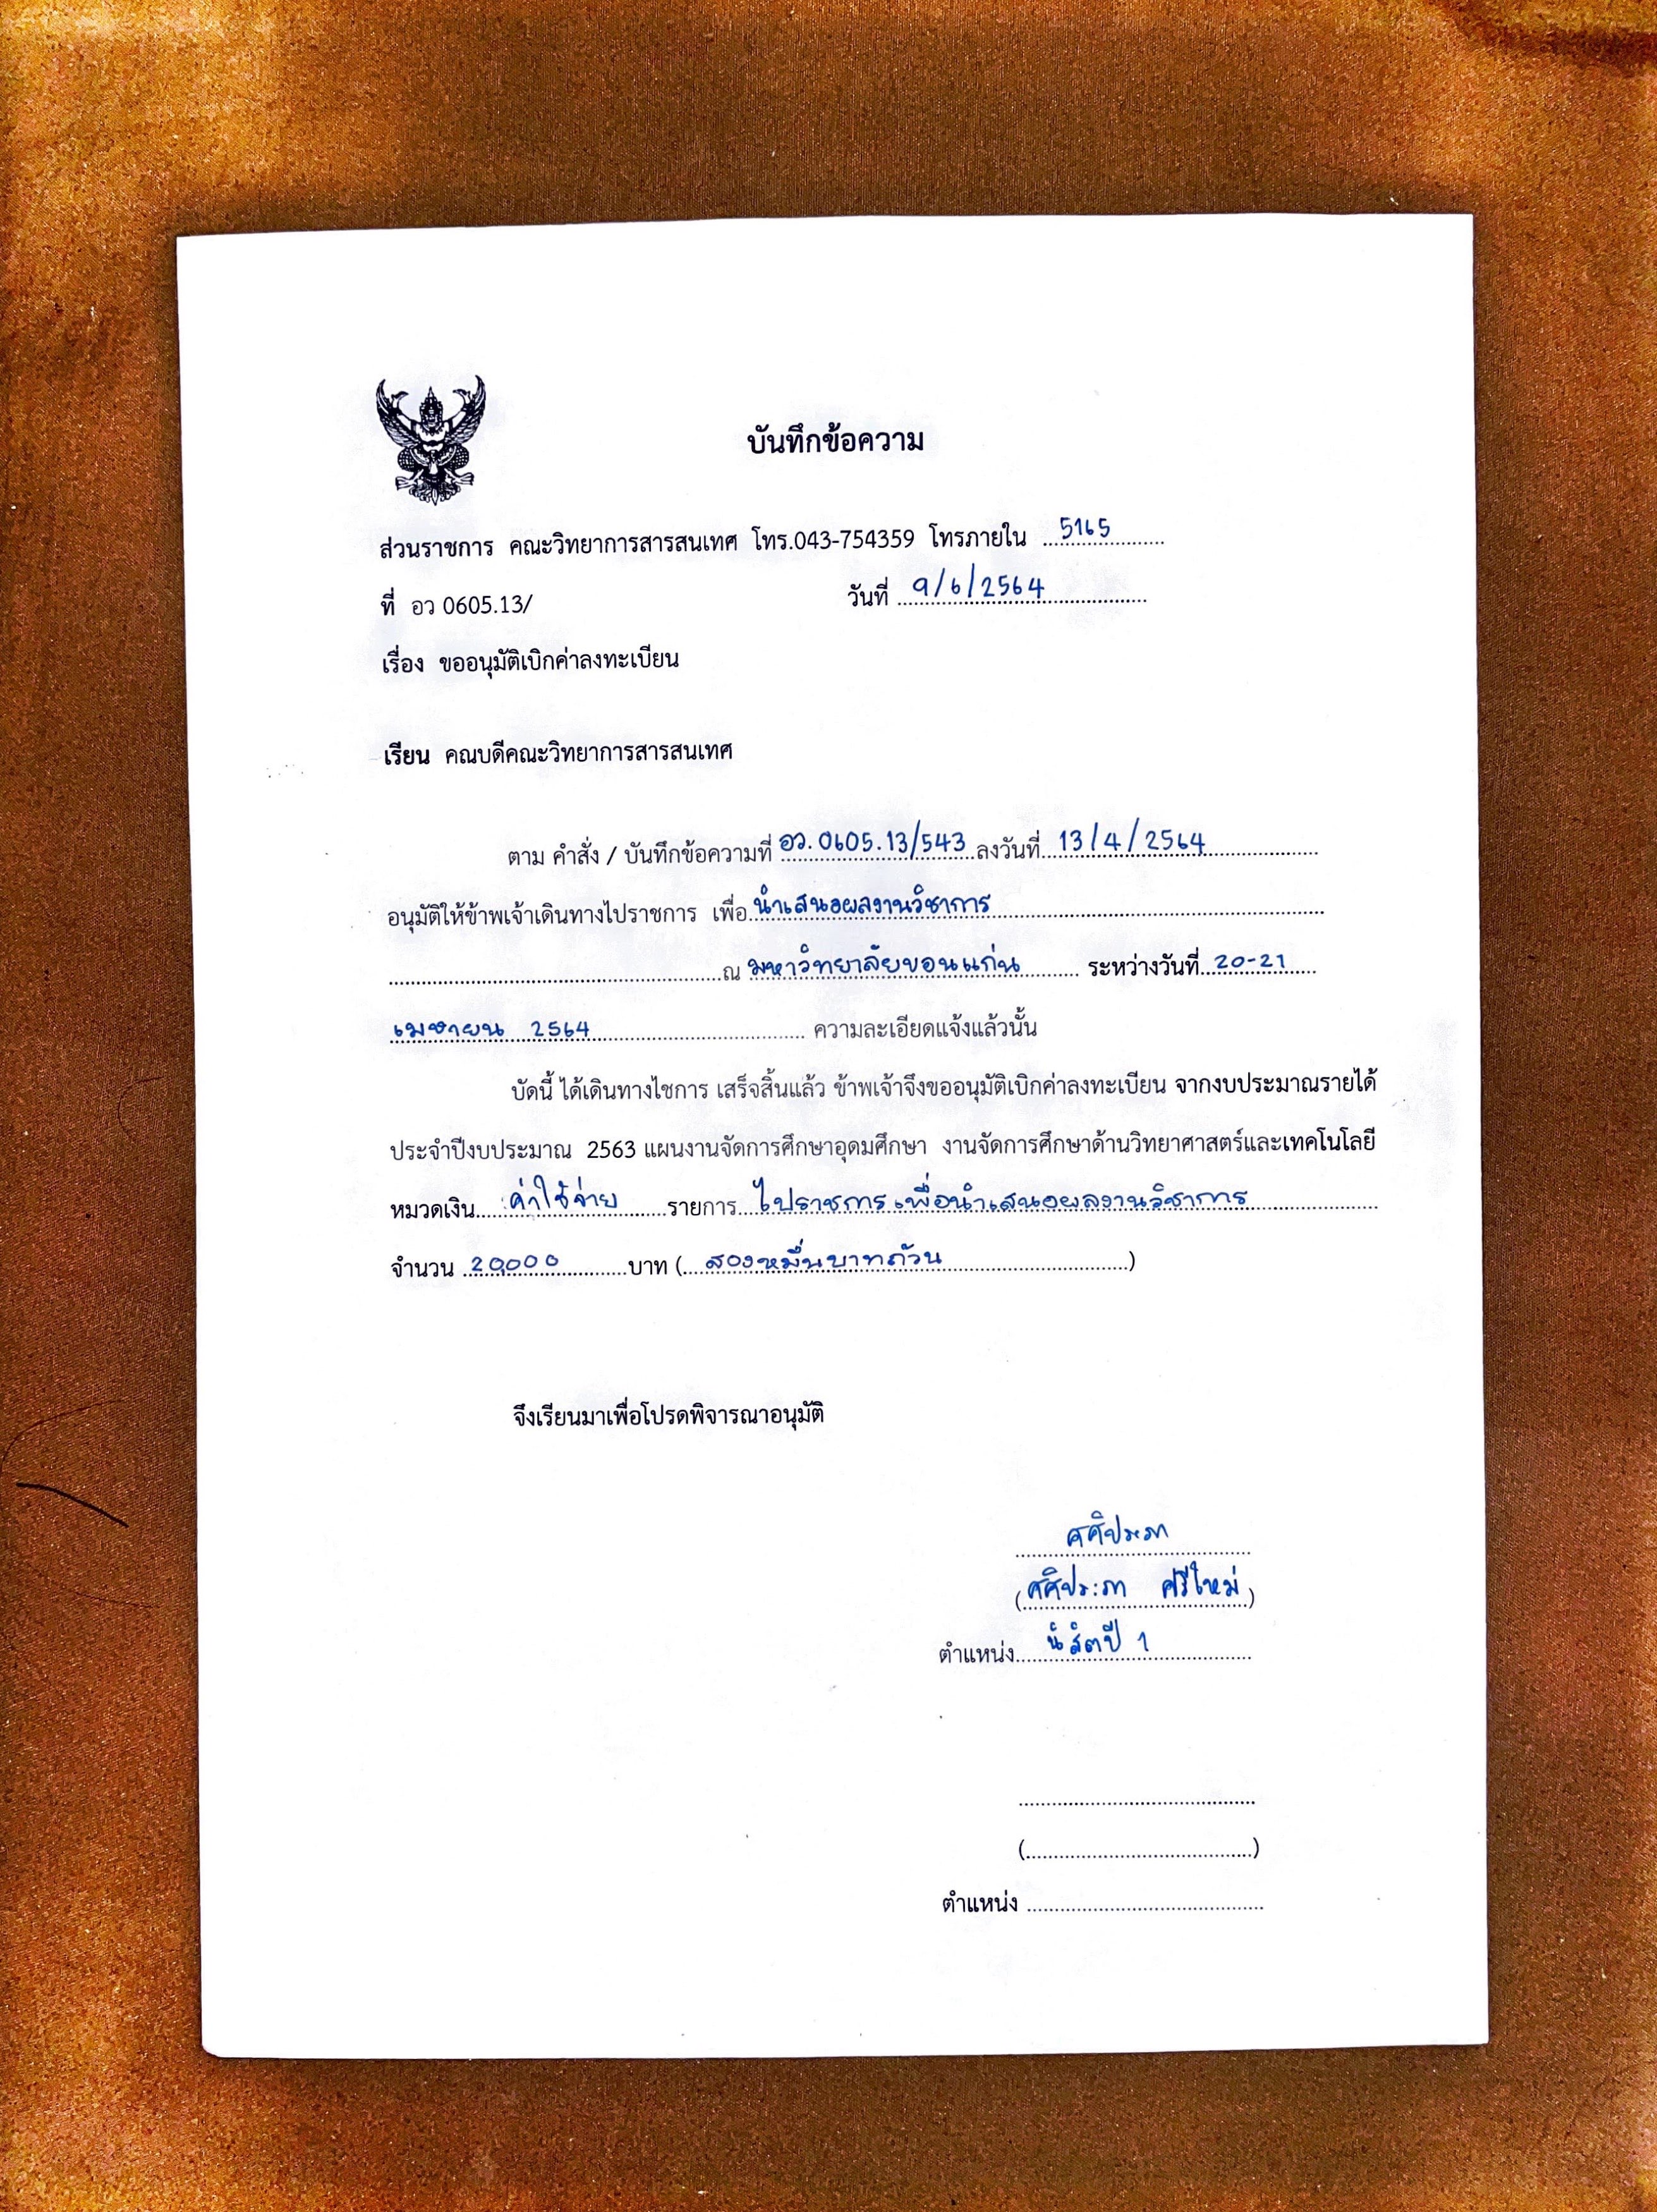 บันทึกข้อความ
ส่วนราชการ คณะวิทยาการสารสนเทศ โทร.043-754359 โทรภายใน 5165
ที่ อว 0605.13/ วันที่ 9/6/2564
เรื่อง ขออนุมัติเบิกค่าลงทะเบียน
เรียน คณบดีคณะวิทยาการสารสนเทศ
ตาม คำสั่ง / บันทึกข้อความที่ อว. 0605.13/543 ลงวันที่ 13/4/2564
อนุมัติให้ข้าพเจ้าเดินทางไปราชการ เพื่อ นำเสนอผลงานวิชาการ
ณ มหาวิทยาลัยขอนแก่น ระหว่างวันที่ 20-21
เมษายน 2564 ความละเอียดแจ้งแล้วนั้น
บัดนี้ ได้เดินทางไชการ เสร็จสิ้นแล้ว ข้าพเจ้าจึงขออนุมัติเบิกค่าลงทะเบียน จากงบประมาณรายได้
ประจำปีงบประมาณ 2563 แผนงานจัดการศึกษาอุดมศึกษา งานจัดการศึกษาด้านวิทยาศาสตร์และเทคโนโลยี
หมวดเงิน ค่าใช้จ่าย รายการ ไปราชการเพื่อนำเสนอผลงานวิชาการ
จำนวน 20,000 บาท ( สองหมื่นบาทถ้วน )
จึงเรียนมาเพื่อโปรดพิจารณาอนุมัติ
ศศิประภา
(ศศิประภา ศรีใหม่)
ตำแหน่ง นิสิตปี 1
(                )
ตำแหน่ง